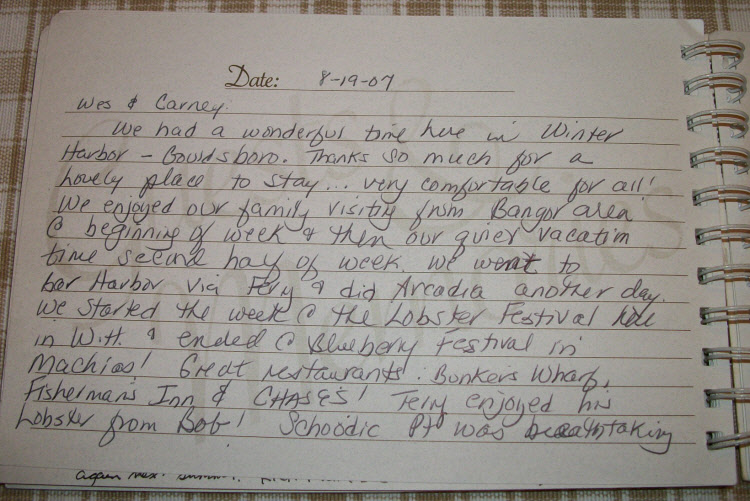 Date: 8-19-07
Wes & Carney.
We had a wonderful time here in Winter
Harbor - Gouldsboro. Thanks so much for a
lovely place to stay... very comfortable for all!
We enjoyed our family visiting from Bangor area
@ beginning of week & then our quier vacation
time second half of week. We went to
bar Harbor via Ferry & did Arcadia another day.
We started the week @ the Lobster Festival here
in W.H. & ended @ Blueberry Festival in
Machias! Great restaurants: Bunkers Wharf,
Fisherman's Inn & CHASES! Terry enjoyed his
Lobster from Bob! Schoodic Pt was breathtaking
again